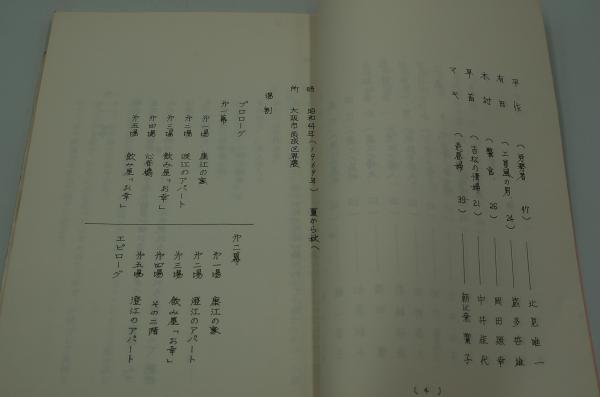 平作（労務者 47）――北見唯一
有田（二百風の男 24）
木村（警官 26）――岡田勝幸
早苗（吉松の情婦 21）――中井佐代
マキ（売春婦 39）
（4）
時 昭和44年（1969年）夏から秋へ
所 大阪市浪速区界隈
場割
プロローグ
第一幕
第一場 庄江の家
第二場 澄江のアパート
第三場 飲み屋「お幸」
第四場 心斎橋
第五場 飲み屋「お幸」
第二幕
第一場 庄江の家
第二場 澄江のアパート
第三場 飲み屋「お幸」
第四場 その二階
第五場 澄江のアパート
エピローグ